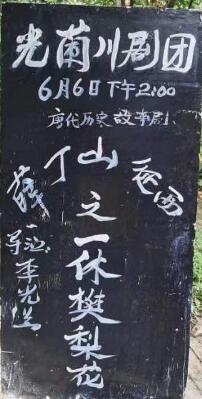 光菌川剧团
6月6日下午2:00
唐代历史故事剧
薛丁山
之一休樊梨花
导演李光